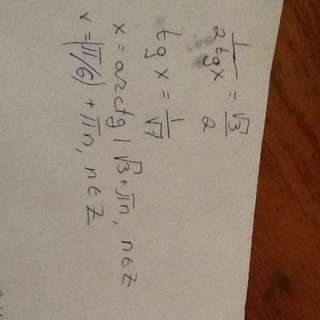 1/(2tgx) = √3/2
tg x = 1/√3
x = arctg 1/√3 + πn, n∈Z
x = (π/6) + πn, n∈Z